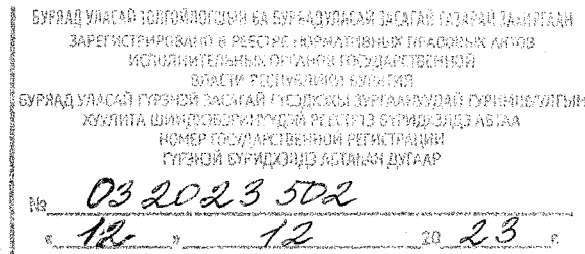 БУРЯАД УЛАСАЙ ТОЛГОЙЛОГШЫН БА БУРЯАД УЛАСАЙ ЗАСАГАЙ ГАЗАРАЙ ЗАХИРГААН
ЗАРЕГИСТРИРОВАНО В РЕЕСТРЕ НОРМАТИВНЫХ ПРАВОВЫХ АКТОВ
ИСПОЛНИТЕЛЬНЫХ ОРГАНОВ ГОСУДАРСТВЕННОЙ
ВЛАСТИ РЕСПУБЛИКИ БУРЯТИЯ
БУРЯАД УЛАСАЙ ГҮРЭНЭЙ ЗАСАГАЙ
РЕЕСТРТЭ БҮРИДХЭЛДЭ АБТАА
НОМЕР ГОСУДАРСТВЕННОЙ РЕГИСТРАЦИИ
ГҮРЭНЭЙ БҮРИДХЭЛДЭ АБТАҺАН ДУГААР
№ 032023502
« 12 » 12 20 23 г.